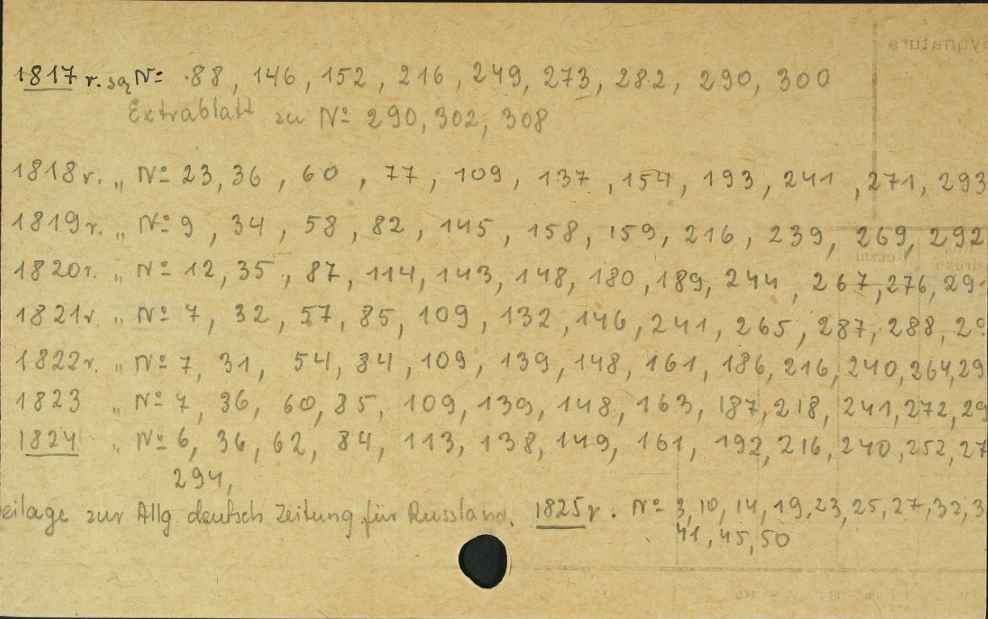 1817 r. są Nº 88, 146, 152, 216, 249, 273, 282, 290, 300
Extrablatt zu Nº 290, 302, 308
1818 r. „ Nº 23, 36, 60, 77, 109, 137, 154, 193, 241, 271, 293
1819 r. „ Nº 9, 34, 58, 82, 145, 158, 159, 216, 239, 269, 292
1820 r. „ Nº 12, 35, 87, 114, 143, 148, 180, 189, 244, 267, 276, 29
1821 r. „ Nº 7, 32, 57, 85, 109, 132, 146, 241, 265, 287, 288, 2
1822 r. „ Nº 7, 31, 54, 84, 109, 139, 148, 161, 186, 216, 240, 264, 29
1823 „ Nº 7, 36, 60, 85, 109, 139, 148, 163, 187, 218, 241, 272, 29
1824 „ Nº 6, 36, 62, 84, 113, 138, 149, 161, 192, 216, 240, 252, 27
294,
eilage zur Allg deutsch Zeitung für Russland. 1825 r. Nº 3, 10, 14, 19, 23, 25, 27, 32, 3
41, 45, 50